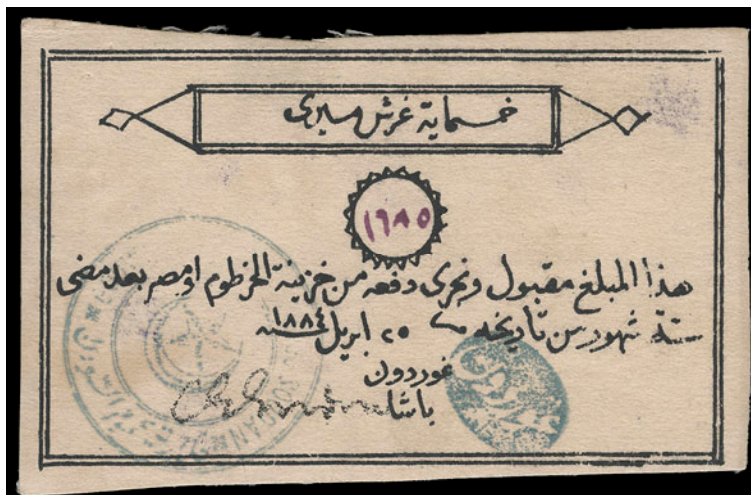 خمسماية غرش ميرى
١٦٨٥
هذا المبلغ مقبول ونجرى دفعه من خزينة الخرطوم او مصر بعد مضى
ستة شهور من تاريخه ٢٥ ابريل سنة ١٨٨٤
غوردون
باشا
SOUDAN